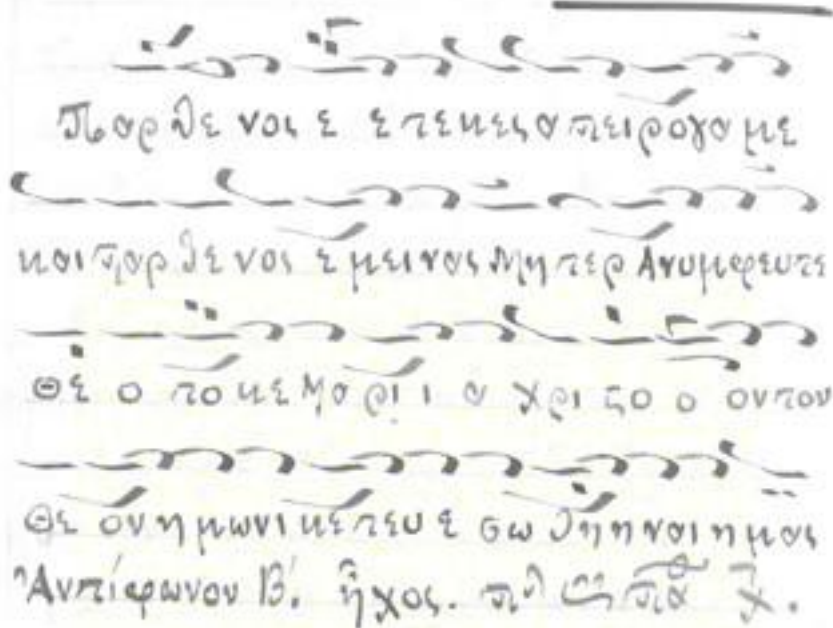 Παρ θε νος ε ε τεκες α πειρογα με
και παρ θε νος ε μεινας Μη τερ Ανυμφευτε
Θε ο το κε Μα ρι ι α χρι ϛο ο ον τον
Θε ον η μων ι κε τευ ε σω θη η ναι η μας
Ἀντίφωνον Β΄. ἦχος. πλ Πα χ.